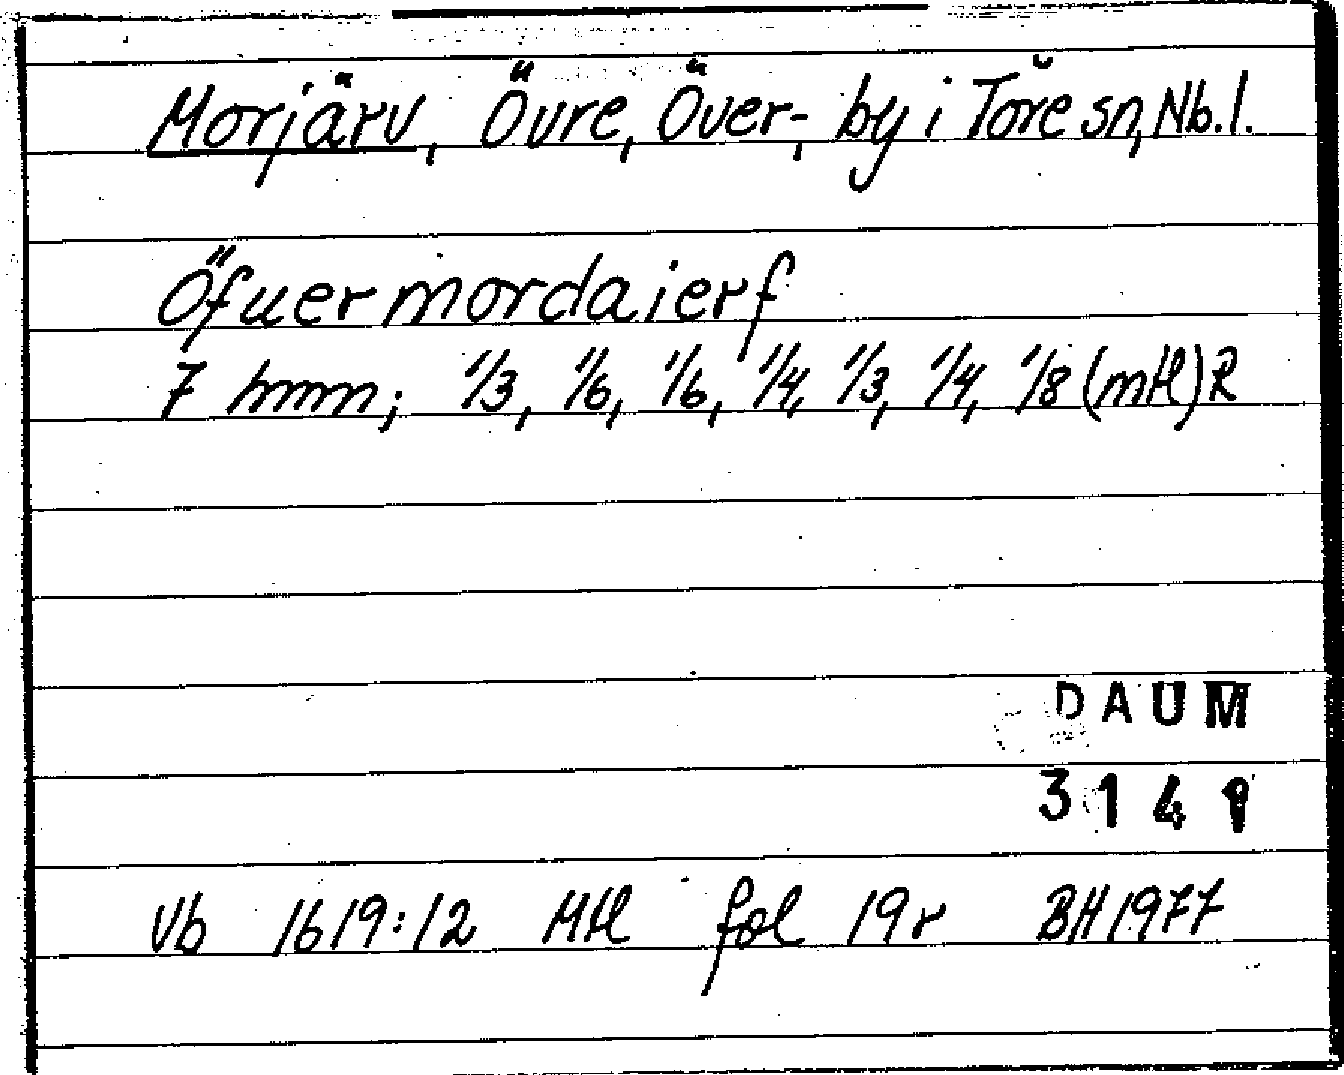 Morjärv, Övre, Över-, by i Töre sn, Nb. l.
Öfuermordaierf
7 hmn; 1/3, 1/6, 1/6, 1/4, 1/3, 1/4, 1/8 (mtl) R
DAUM
3141
Vb 1619:12 Mtl fol 19r BH 1977